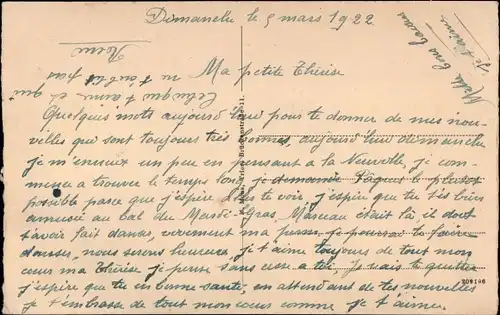 Dimanche le 5 mars 1922
Ma petite Thérèse
Quelques mots aujourd'hui pour te donner de mes nou-
velles qui sont toujours très bonnes, aujourd'hui dimanche
je m'ennuie un peu en pensant a la Neuville, je com-
mence a trouver le temps long, je demande Pâques le plutot
possible parce que j'espère te voir, j'espère que tu t'es bien
amusée au bal du Mardi-Gras, Marceau était là, il doit
savoir fait danser, vivement ma perme je pourrai te faire
danser, nous serons heureux, je t'aime toujours de tout mon
cœur ma Thérèse je pense sans cesse a toi, Je vais te quitter
j'espère que tu es en bonne santé, en attendant de tes nouvelles
je t'embrasse de tout mon cœur comme je t'aime.
Celui qui t'aime et qui
ne t'oublie pas
René
Mille bons baisers
je t'aime
209196